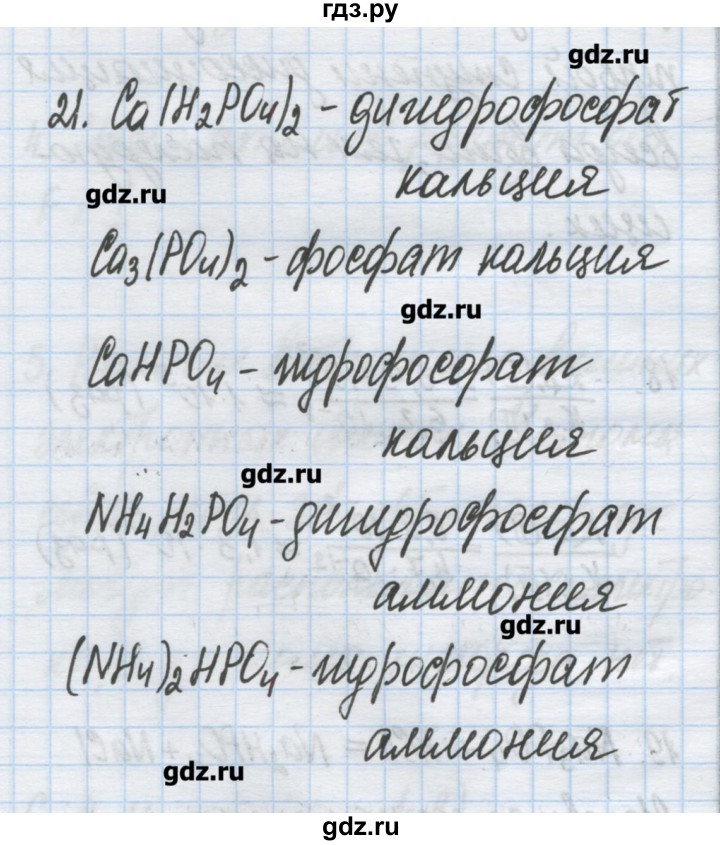 гдз.ру
gdz.ru
21. Ca(H₂PO₄)₂ - дигидрофосфат
gdz.ru
кальция
Ca₃(PO₄)₂ - фосфат кальция
gdz.ru
CaHPO₄ - гидрофосфат
кальция
gdz.ru
NH₄H₂PO₄ - дигидрофосфат
аммония
gdz.ru
(NH₄)₂HPO₄ - гидрофосфат
аммония
gdz.ru
gdz.ru